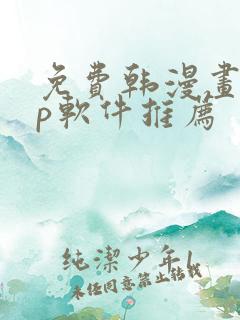 免費韩漫畫
p軟件推薦
純潔少年1
未经同意禁止转载